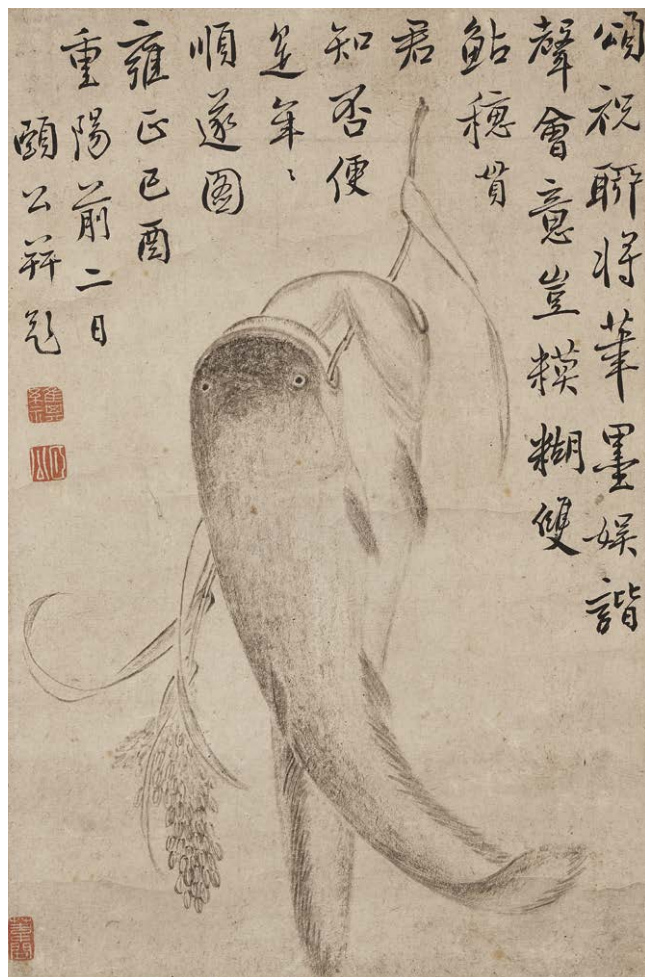 頌祝聊将筆墨娱諧
聲會意豈糢糊雙
鮎穗貫
君
知否便
是年〻
順遂图
雍正己酉
重陽前二日
頤公并題